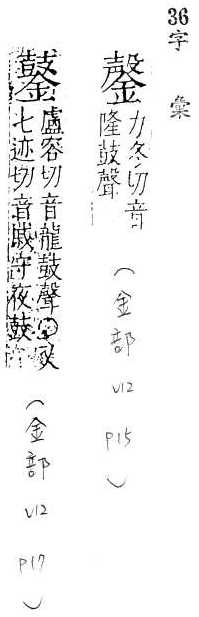 36
字彙
鏧
力冬切音
隆鼓聲
(金部 V12 P15)
盧容切音龍鼓聲○又
七迹切音戚守夜鼓
(金部 V12 P17)